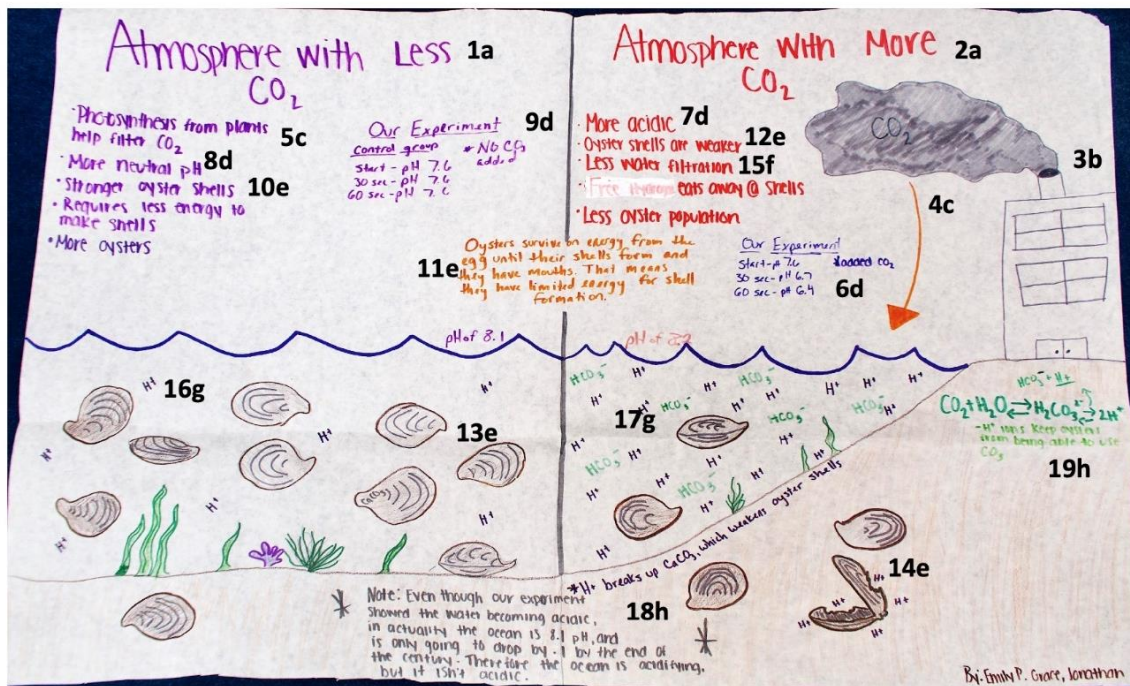 Atmosphere with Less 1a
CO₂
• Photosynthesis from plants
help filter CO₂ 5c
• More neutral pH 8d
• Stronger oyster shells 10e
• Requires less energy to
make shells
• More oysters
Our Experiment 9d
Control group * No CO₂
added
Start - pH 7.6
30 sec - pH 7.6
60 sec - pH 7.6
Atmosphere with More 2a
CO₂
• More acidic 7d
• Oyster shells are weaker 12e
• Less water filtration 15f
• Free Hydrogen eats away @ shells
• Less oyster population
CO₂
3b
4c
11e
Oysters survive on energy from the
egg until their shells form and
they have mouths. That means
they have limited energy for shell
formation.
Our Experiment
Start - pH 7.6 *added CO₂
30 sec - pH 6.7
60 sec - pH 6.4
6d
pH of 8.1
pH of
H+ 16g
H+
H+
H+
H+
H+
H+
13e
CaCO₃
HCO₃⁻
HCO₃⁻
HCO₃⁻
HCO₃⁻
HCO₃⁻
HCO₃⁻
HCO₃⁻
H+
H+
H+
H+
H+
H+
H+
H+
H+
H+
H+
H+
17g
* H+ breaks up CaCO₃, which weakens oyster shells
18h
14e
H+
H+
H+
H+
H+
HCO₃⁻ + H+
CO₂ + H₂O ⇌ H₂CO₃ ⇌ 2H⁺
- H⁺ ions keep oysters
from being able to use
CO₃
19h
* Note: Even though our experiment
showed the water becoming acidic,
in actuality the ocean is 8.1 pH, and
is only going to drop by .1 by the end of
the century. Therefore the ocean is acidifying,
but it isn't acidic. *
By: Emily P. Grace, Jonathan